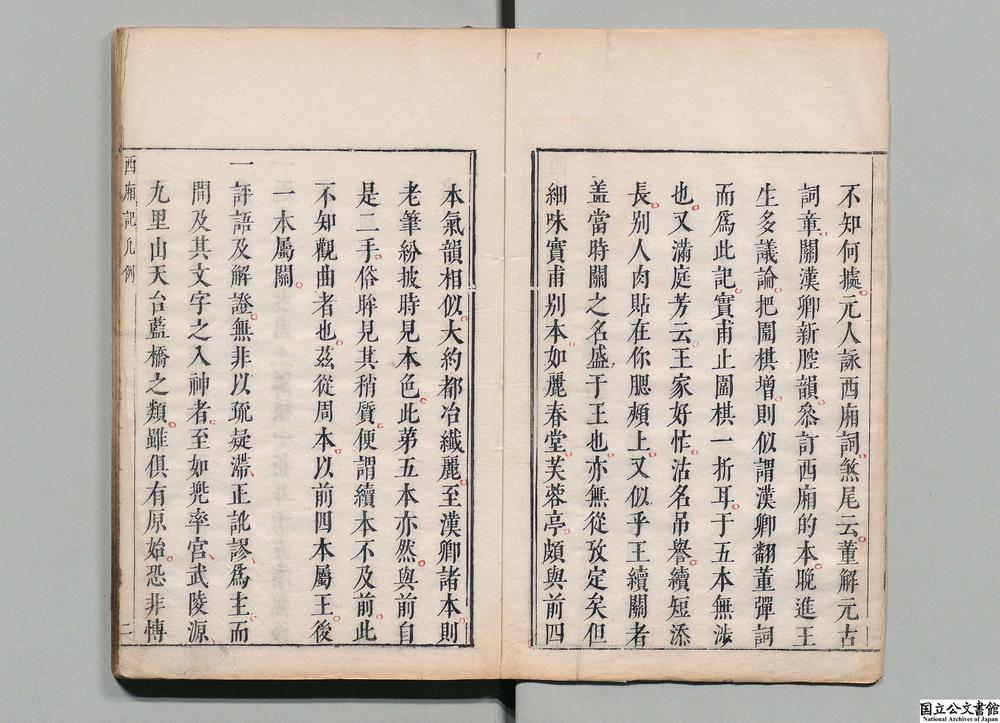 不知何㨿元人詠西廂詞煞尾云董解元古
詞章關漢卿新腔韻叅訂西廂的本晚進王
生多議論把圍棋增則似謂漢卿翻董彈詞
而爲此記實甫止圍棋一折耳于五本無涉
也又滿庭芳云王家好忤沽名吊譽續短添
長別人肉貼在你腮頰上又似乎王續關者
盖當時關之名盛于王也亦無從攷定矣但
細味實甫別本如麗春堂芙蓉亭頗與前四
本氣韻相似大約都冶纖麗至漢卿諸本則
老筆紛披時見本色此第五本亦然與前自
是二手俗眸見其稍質便謂續本不及前此
不知觀曲者也茲從周本以前四本屬王後
一本屬關
一評語及解證無非以疏疑滯正訛謬爲主而
間及其文字之入神者至如兜率宮武陵源
九里山天台藍橋之類雖俱有原始恐非博
西廂記凡例
二
国立公文書館
National Archives of Japan